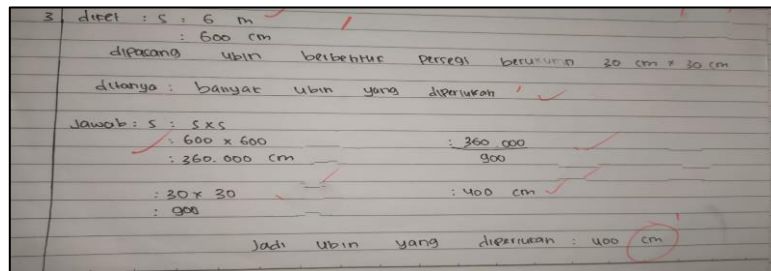 3 diket : s : 6 m
: 600 cm
dipasang ubin berbentuk persegi berukuran 30 cm x 30 cm
ditanya : banyak ubin yang diperlukan
Jawab : s : s x s
: 600 x 600
: 360.000 cm
: 30 x 30
: 900
: 360.000
900
: 400 cm
Jadi ubin yang diperlukan : 400 cm